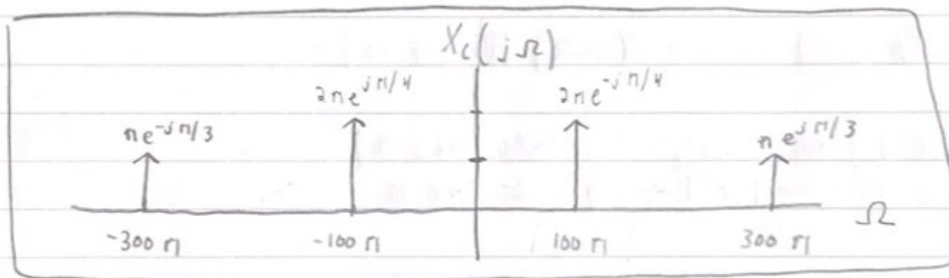 X_c(jΩ)
2πe^{jπ/4} 2πe^{-jπ/4}
πe^{-jπ/3} πe^{jπ/3}
Ω
-300π -100π 100π 300π